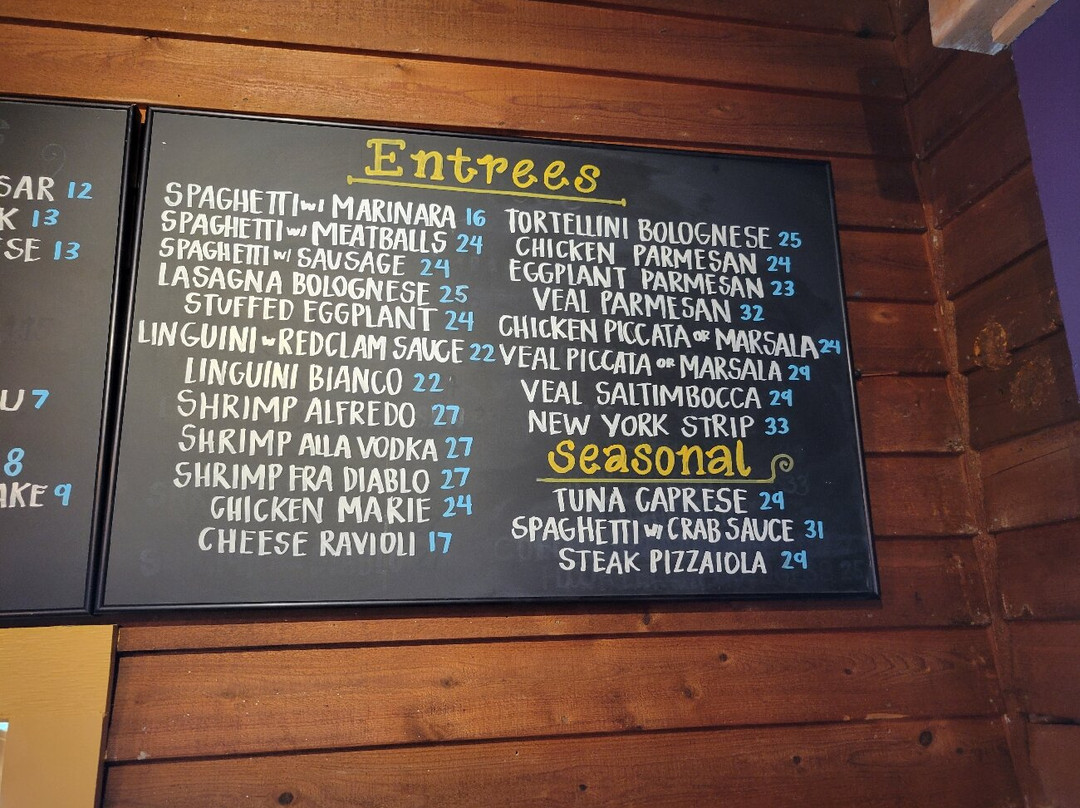 SAR 12
K 13
SE 13
U 7
8
AKE 9
Entrees
SPAGHETTI w/ MARINARA 16
SPAGHETTI w/ MEATBALLS 24
SPAGHETTI w/ SAUSAGE 24
LASAGNA BOLOGNESE 25
STUFFED EGGPLANT 24
LINGUINI w REDCLAM SAUCE 22
LINGUINI BIANCO 22
SHRIMP ALFREDO 27
SHRIMP ALLA VODKA 27
SHRIMP FRA DIABLO 27
CHICKEN MARIE 24
CHEESE RAVIOLI 17
TORTELLINI BOLOGNESE 25
CHICKEN PARMESAN 24
EGGPLANT PARMESAN 23
VEAL PARMESAN 32
CHICKEN PICCATA OR MARSALA 24
VEAL PICCATA OR MARSALA 29
VEAL SALTIMBOCCA 29
NEW YORK STRIP 33
Seasonal
TUNA CAPRESE 29
SPAGHETTI w/ CRAB SAUCE 31
STEAK PIZZAIOLA 29